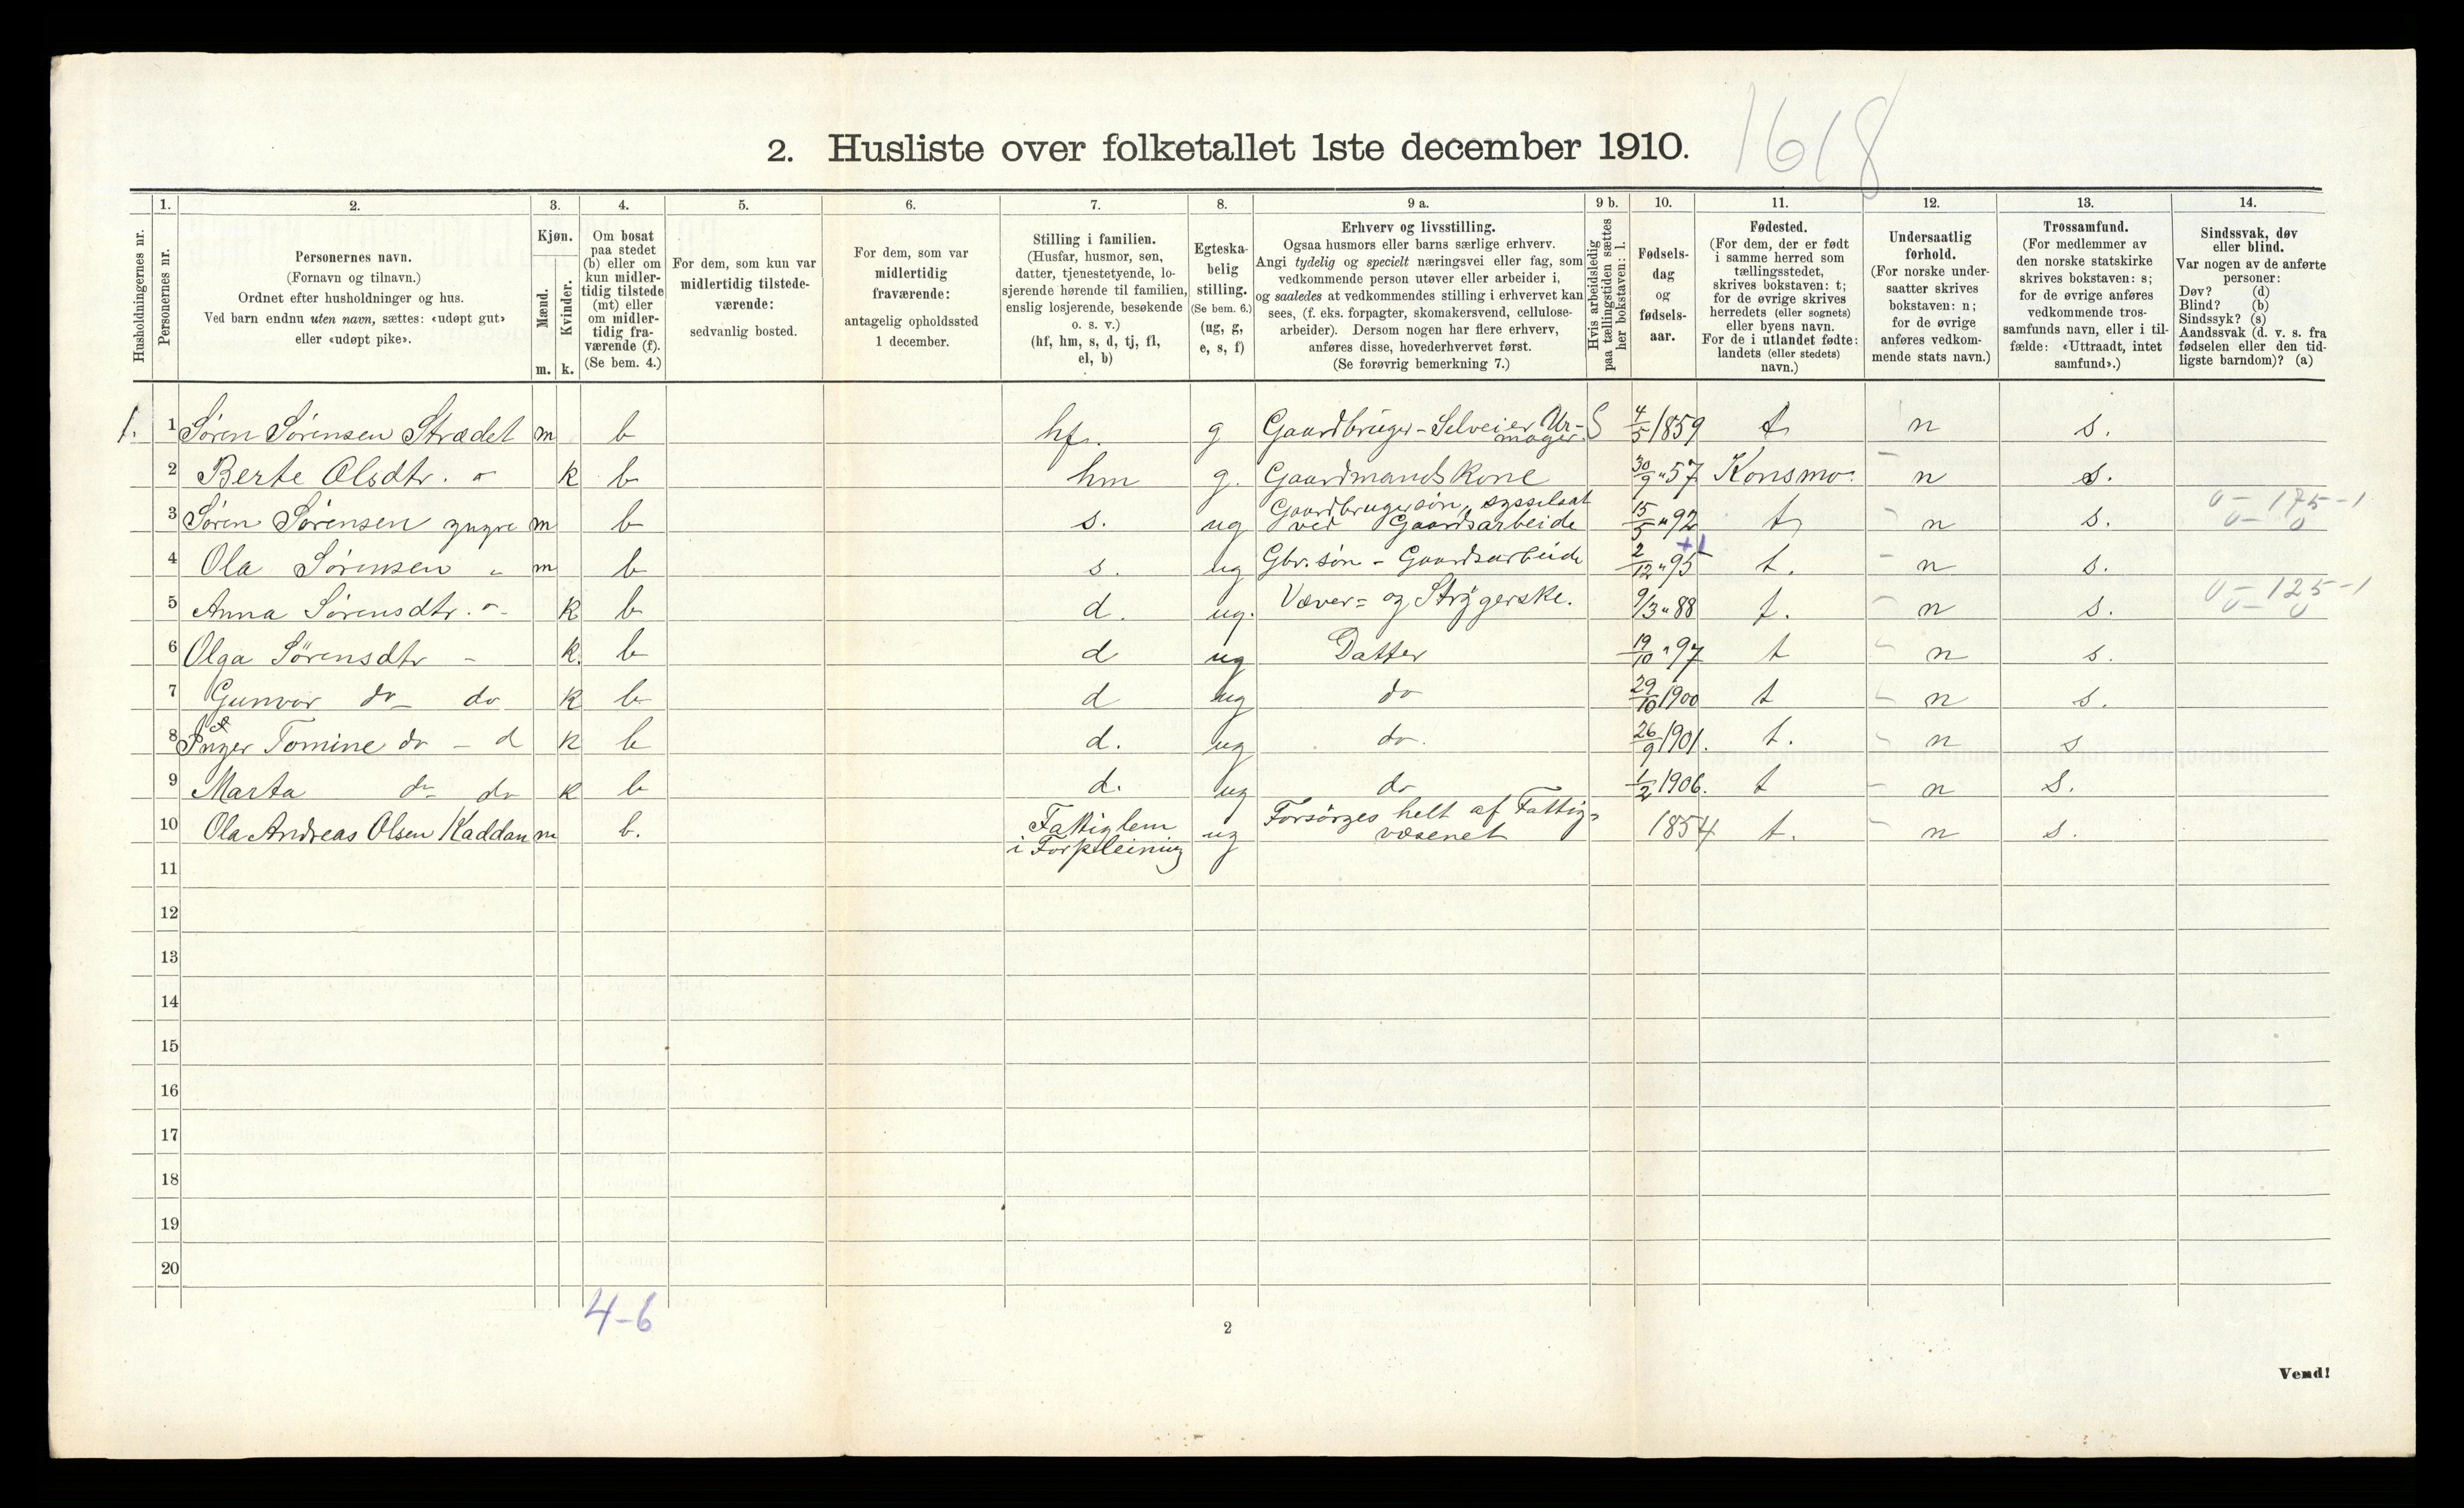 2. Husliste over folketallet 1ste december 1910.
1618
Husholdningernes nr.
1. Personernes nr.
2. Personernes navn.
(Fornavn og tilnavn.)
Ordnet efter husholdninger og hus.
Ved barn endnu uten navn, sættes: «udøpt gut»
eller «udøpt pike».
3. Kjøn.
Mænd. Kvinder.
m. k.
4. Om bosat
paa stedet
(b) eller om
kun midler-
tidig tilstede
(mt) eller
om midler-
tidig fra-
værende (f).
(Se bem. 4.)
5. For dem, som kun var
midlertidig tilstede-
værende:
sedvanlig bosted.
6. For dem, som var
midlertidig
fraværende:
antagelig opholdssted
1 december.
7. Stilling i familien.
(Husfar, husmor, søn,
datter, tjenestetyende, lo-
sjerende hørende til familien,
enslig losjerende, besøkende
o. s. v.)
(hf, hm, s, d, tj, fl,
el, b)
8. Egteska-
belig
stilling.
(Se bem. 6.)
(ug, g,
e, s, f)
9 a. Erhverv og livsstilling.
Ogsaa husmors eller barns særlige erhverv.
Angi tydelig og specielt næringsvei eller fag, som
vedkommende person utøver eller arbeider i,
og saaledes at vedkommendes stilling i erhvervet kan
sees, (f. eks. forpagter, skomakersvend, cellulose-
arbeider). Dersom nogen har flere erhverv,
anføres disse, hovederhvervet først.
(Se forøvrig bemerkning 7.)
9 b. Hvis arbeidsledig
paa tællingstiden sættes
her bokstaven: l.
10. Fødsels-
dag
og
fødsels-
aar.
11. Fødested.
(For dem, der er født
i samme herred som
tællingsstedet,
skrives bokstaven: t;
for de øvrige skrives
herredets (eller sognets)
eller byens navn.
For de i utlandet fødte:
landets (eller stedets)
navn.)
12. Undersaatlig
forhold.
(For norske under-
saatter skrives
bokstaven: n;
for de øvrige
anføres vedkom-
mende stats navn.)
13. Trossamfund.
(For medlemmer av
den norske statskirke
skrives bokstaven: s;
for de øvrige anføres
vedkommende tros-
samfunds navn, eller i til-
fælde: «Uttraadt, intet
samfund».)
14. Sindssvak, døv
eller blind.
Var nogen av de anførte
personer:
Døv? (d)
Blind? (b)
Sindssyk? (s)
Aandssvak (d. v. s. fra
fødselen eller den tid-
ligste barndom)? (a)
1. 1 Søren Sørensen Strædet m b hf. g Gaardbruger - Selveier Ur-mager. S 4/5 1859 t n s.
2 Berte Olsdtr. " k b hm g. Gaardmandskone 30/9 " 57 Konsmo. n s.
3 Søren Sørensen yngre m b s. ug Gaardbrugersøn, sysselsat ved Gaardsarbeide 15/5 " 92 t n s. 0 - 175 - 1
0 - 0
4 Ola Sørensen " m b s. ug Gbr. søn - Gaardsarbeide 2/12 " 95 +1 t. n s.
5 Anna Sørensdtr. " k b d. ug. Væver= og Strygerske. 9/3 " 88 t. n s. 0 - 125 - 1
0 - 0
6 Olga Sørensdtr - k. b d ug Datter 19/10 " 97 t n s.
7 Gunvor do - do k b d ug do 29/10 1900 t n s.
8 Inger Tomine do - d k b d. ug do. 26/9 1901. t. n s
9 Marta do do k b d. ug do 1/2 1906. t n s.
10 Ola Andreas Olsen Kaddan m b. Fattiglem ug Forsörges helt af Fattig= 1854 t. n s.
i Forpleining væsenet
11
12
13
14
15
16
17
18
19
20
4-6
2
Vend!